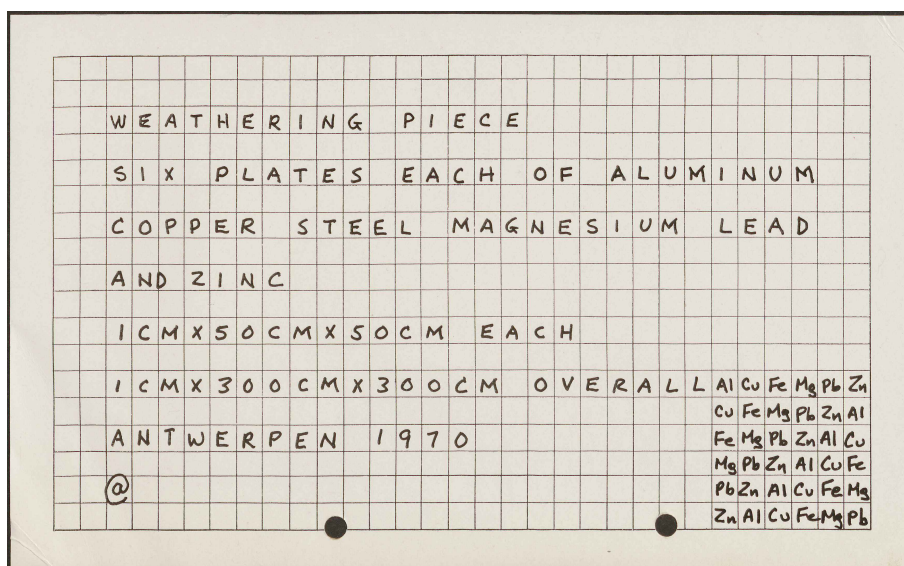 WEATHERING PIECE
SIX PLATES EACH OF ALUMINUM
COPPER STEEL MAGNESIUM LEAD
AND ZINC
1CMX50CMX50CM EACH
1CMX300CMX300CM OVERALL
Al Cu Fe Mg Pb Zn
Cu Fe Mg Pb Zn Al
ANTWERPEN 1970
Fe Mg Pb Zn Al Cu
Mg Pb Zn Al Cu Fe
@
Pb Zn Al Cu Fe Mg
Zn Al Cu Fe Mg Pb